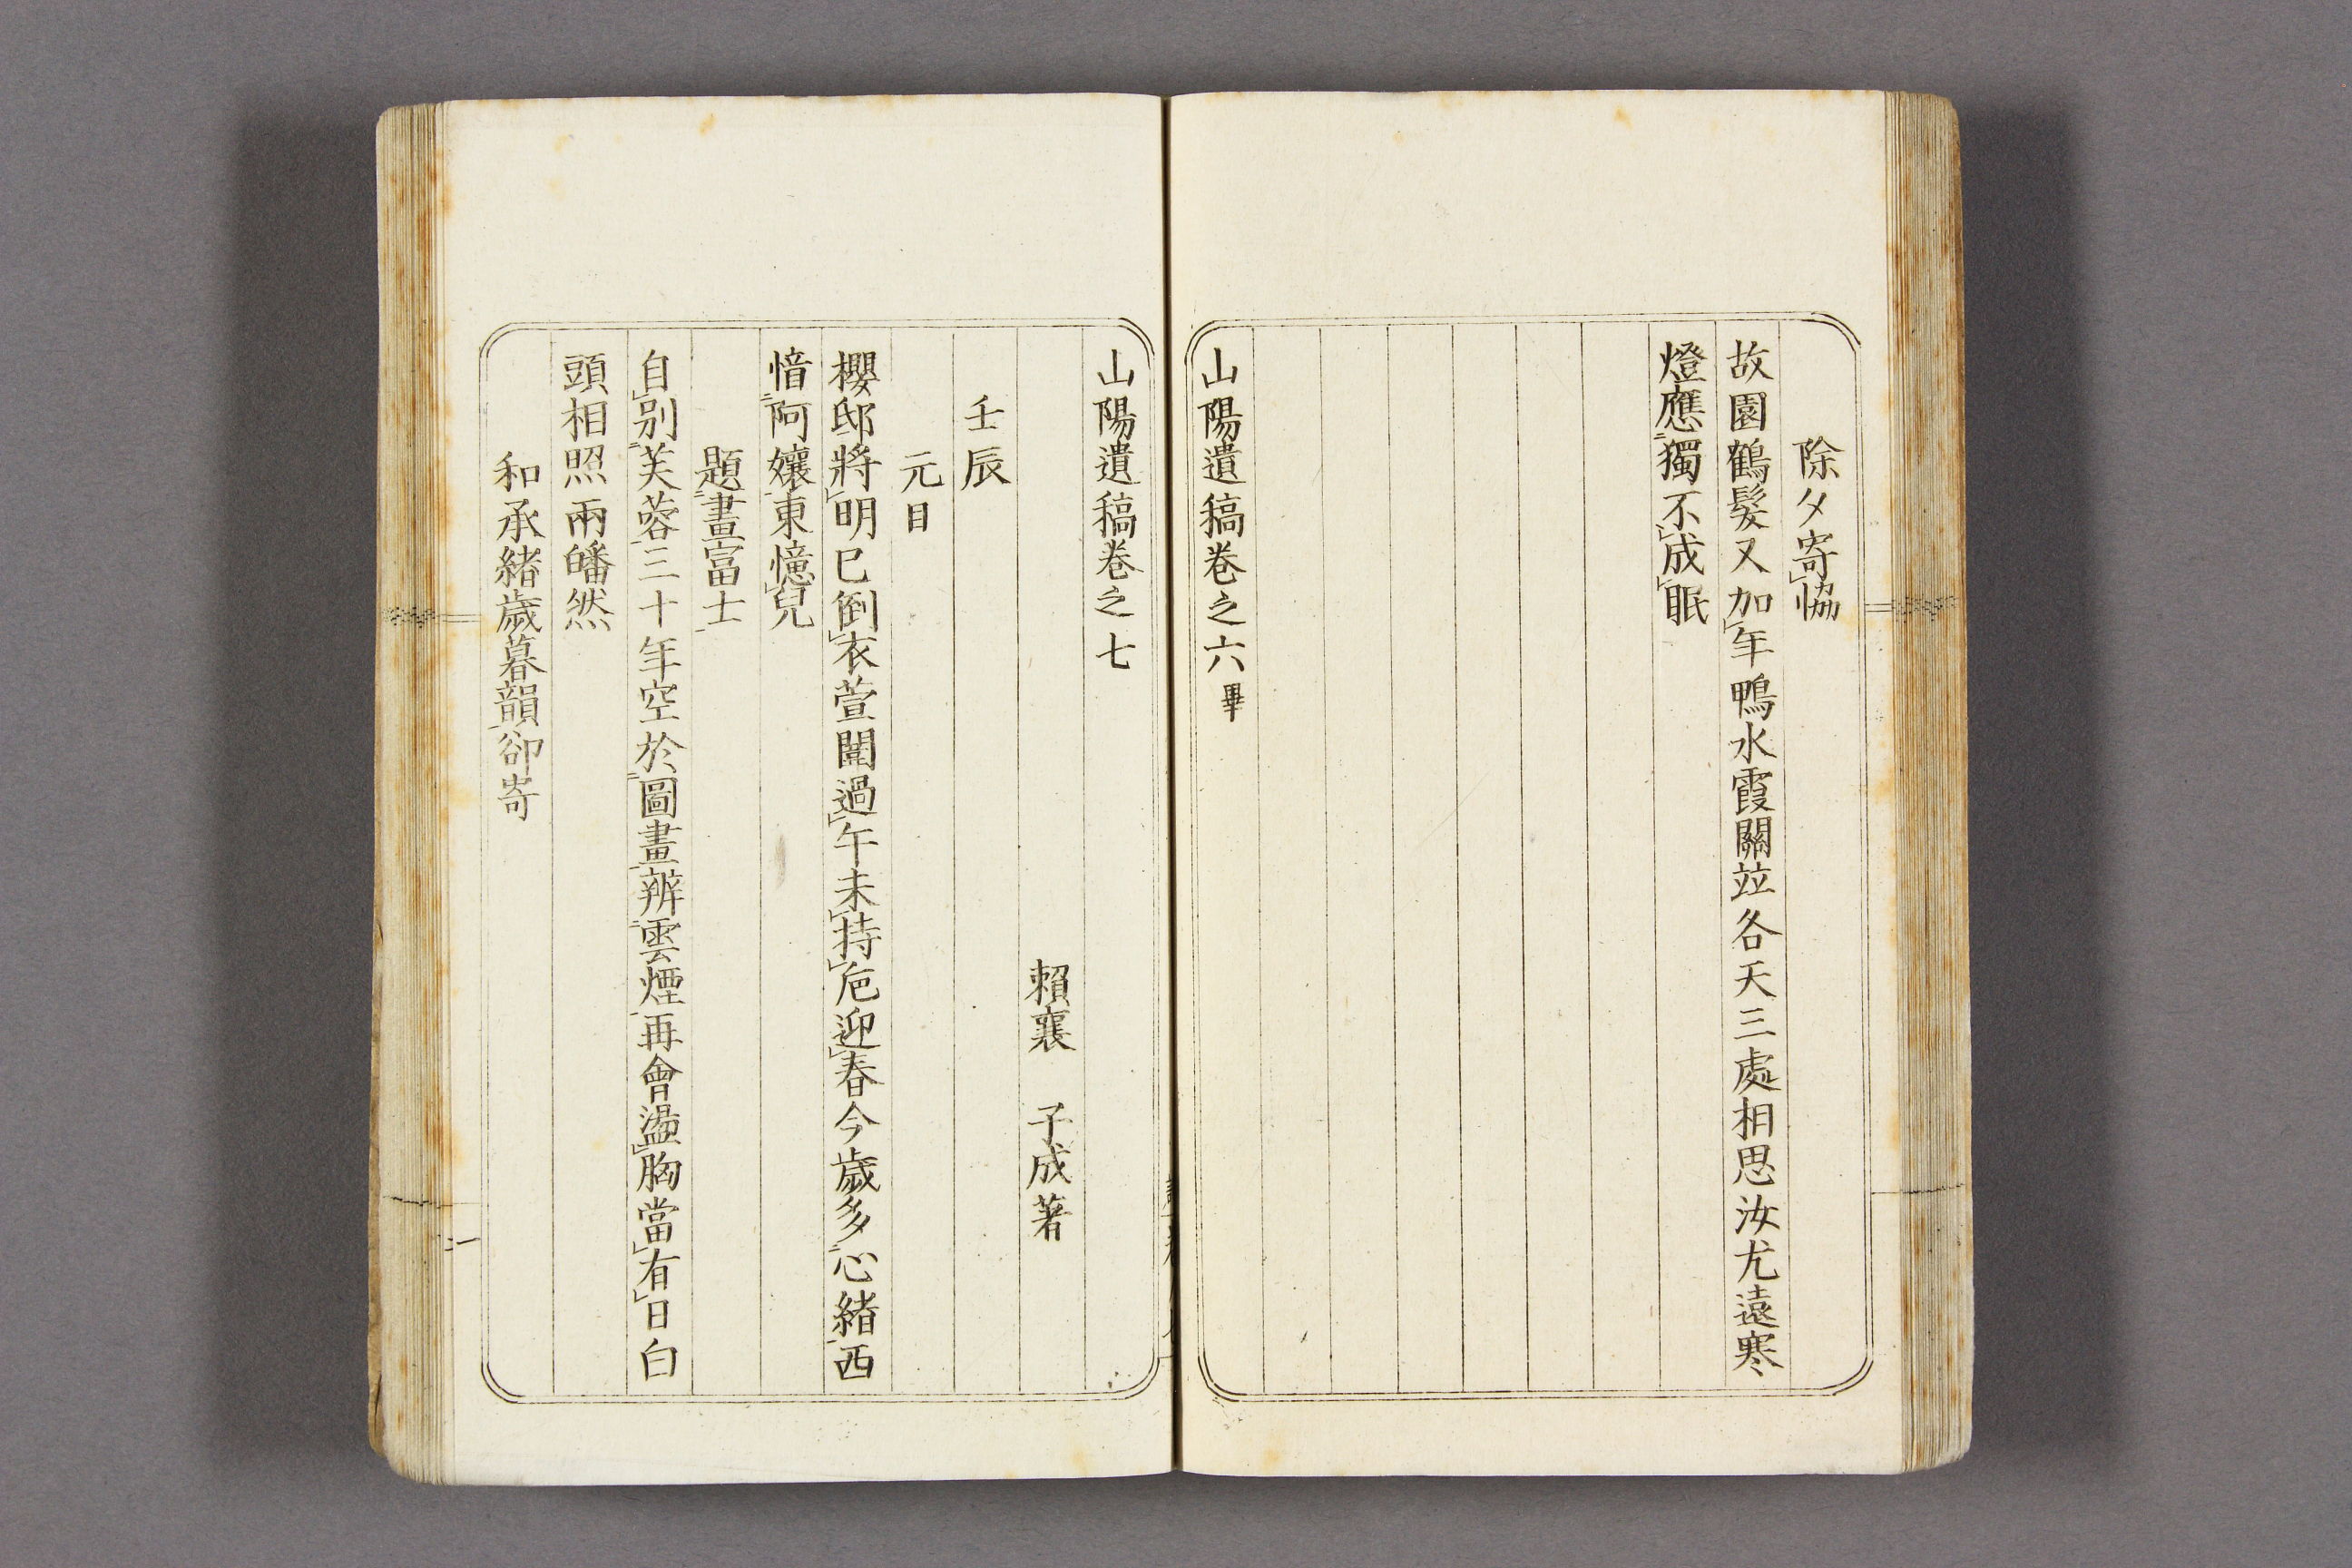 除夕寄協
故園鶴髮又加年鴨水霞關竝各天三處相思汝尤遠寒
燈應獨不成眠
山陽遺稿卷之六畢
山陽遺稿卷之七
賴襄　子成著
壬辰
元日
櫻邸將明已倒衣萱闈過午未持卮迎春今歲多心緒西
愔阿孃東憶兒
題畫富士
自別芙蓉三十年空於圖畫辨雲煙再會盪胸當有日白
頭相照兩皤然
和承緒歲暮韻卻寄
一